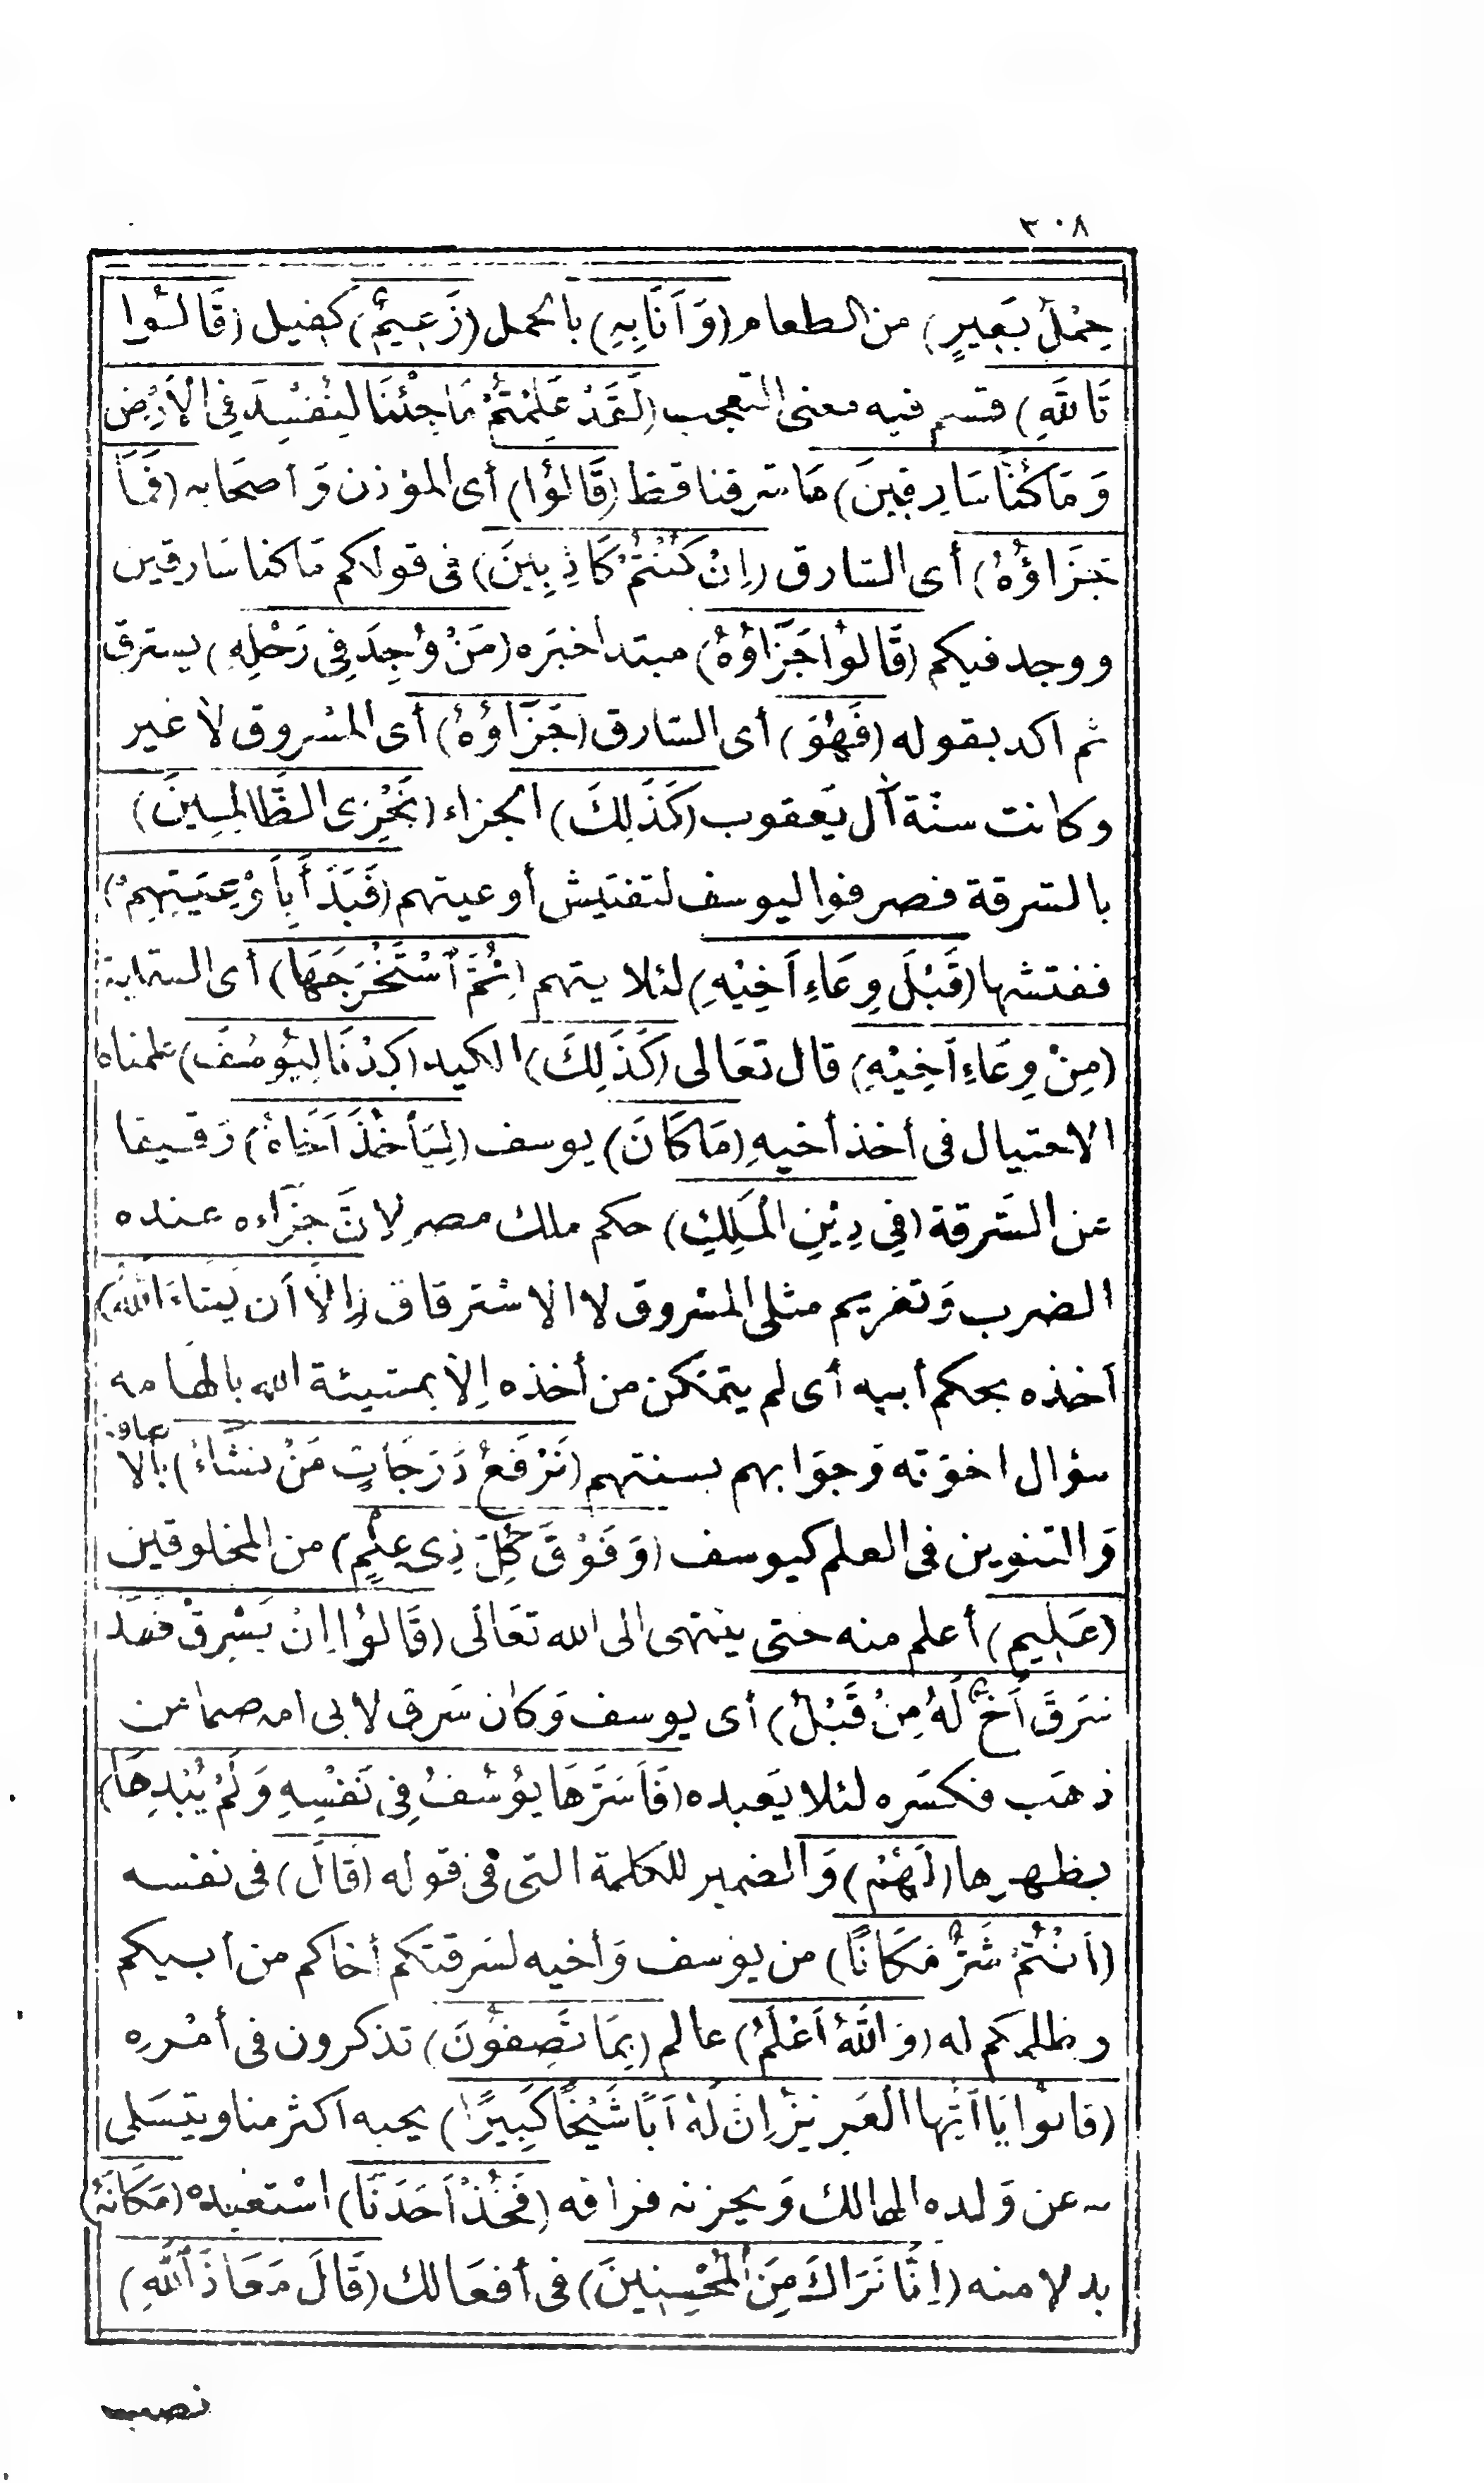 ٣٠٨
حِمْلُ بَعِيرٍ) من الطعام (وَأَنَا بِهِ) بالحمل (زَعِيمٌ) كفيل (قَالُوا
تَاللَّهِ) قسم فيه معنى التعجب (لَقَدْ عَلِمْتُمْ مَا جِئْنَا لِنُفْسِدَ فِي الْأَرْضِ
وَمَا كُنَّا سَارِقِينَ) مَا سَرقنا قط (قَالُوا) أى المؤذن وَأصحَابه (فَمَا
جَزَاؤُهُ) أى السَّارق (إِنْ كُنْتُمْ كَاذِبِينَ) فى قولكم مَا كنا سَارقين
ووجد فيكم (قَالُوا جَزَاؤُهُ) مبتدا خبَره (مَنْ وُجِدَ فِي رَحْلِهِ) يسترق
ثم اكد بقوله (فَهُوَ) أى السَّارق (جَزَاؤُهُ) أى المسْروق لاَ غير
وكانت سنّة آل يَعقوب (كَذَلِكَ) الجزاء (نَجْزِى الظَّالِمِينَ)
بالسَّرقة فصرفوا ليوسف لتفتيش أوعيتهم (فَبَدَأَ بِأَوْعِيَتِهِمْ)
ففتشها (قَبْلَ وِعَاءِ أَخِيْهِ) لئلا يتهم (ثُمَّ اسْتَخْرَجَهَا) أى السقاية
(مِنْ وِعَاءِ أَخِيْهِ) قال تعَالى (كَذَلِكَ) الكيد (كِدْنَا لِيُوسُفَ) علمناه
الاحتيال فى أخذ أخيهِ (مَا كَانَ) يوسف (لِيَأْخُذَ أَخَاهُ) رَقيقا
عن السَّرقة (فِي دِيْنِ الْمَلِكِ) حكم ملك مصر لِانَّ جزَآءه عنده
الضرب وَتغريم مثلى المسْروق لا الاسْترقاق (إِلَّا أَن يَشَاءَ اللَّهُ)
أخذه بحكم أبيه أى لم يتمَكن من أخذه إلاَّ بمشيئة الله بالهَامه
سؤال اخوَته وَجوَابهم بسنتهم (نَرْفَعُ دَرَجَاتٍ مَنْ نَشَاءُ) بالاضافة
وَالتنوين فى العلم كيوسف (وَفَوْقَ كُلِّ ذِي عِلْمٍ) من المخلوقين
(عَلِيم) أعلم منه حَتى ينتهى الى الله تعَالَى (قَالُوْا إِنْ يَسْرِقْ فَقَدْ
سَرَقَ أَخٌ لَهُ مِنْ قَبْلُ) أى يوسف وَكان سَرق لابى امه صنما من
ذهَب فكسَره لئلا يَعبده (فَأَسَرَّهَا يُوسُفُ فِي نَفْسِهِ وَلَمْ يُبْدِهَا)
يظهرها (لَهُمْ) وَالضمير للكلمة التى فى قوله (قَالَ) فى نفسه
(أَنْتُمْ شَرٌّ مَكَانًا) من يوسف وَأخيه لسَرقتكم أخاكم من أبيكم
وظلمكم له (وَاللَّهُ أَعْلَمُ) عالم (بِمَا تَصِفُونَ) تذكرون فى أمْرِه
(قَالُوا يَا أَيُّهَا الْعَزِيزُ إِنَّ لَهُ أَبًا شَيْخًا كَبِيرًا) يحبه أكثر منا ويتسَلى
به عن وَلده الهالك وَيحزنه فراقه (فَخُذْ أَحَدَنَا) اسْتعبده (مَكَانَهُ)
بدلا منه (إِنَّا نَرَاكَ مِنَ الْمُحْسِنِينَ) فى أفعَالك (قَالَ مَعَاذَ اللَّهِ)
نصب